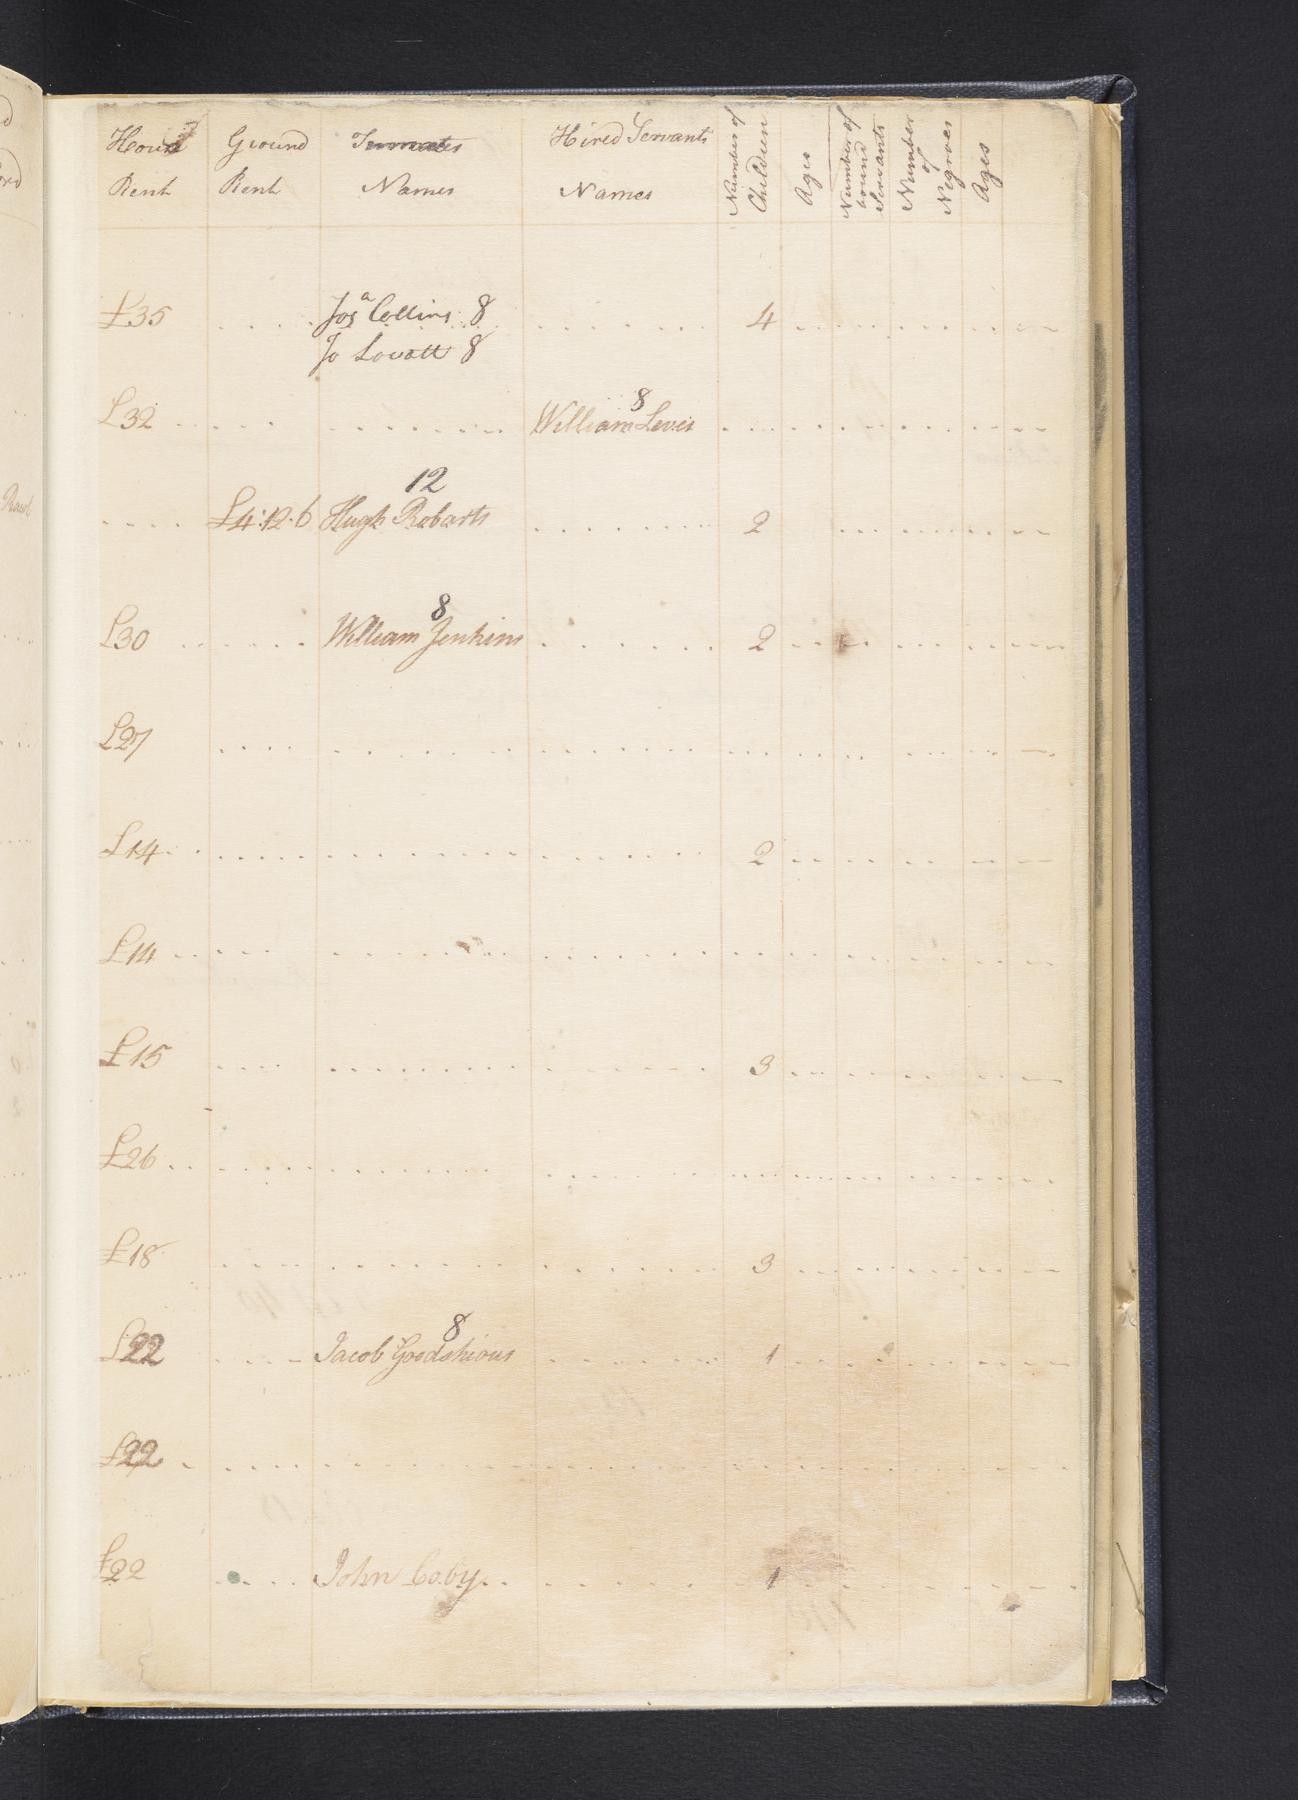 House Ground Inmates Hired Servants Number of Children Ages Number of bound Servants Number of Negroes Ages
Rent Rent Names Names
£35 Josa Collins 8 4
Jo Lovatt 8
£32 William Lewis 8
12
£4:12:6 Hugh Robarts 2
8
£30 William Jenkins 2
£27
£14 2
£14
£15 3
£26
£18 3
8
£22 Jacob 1
£22
£22 John Coby 1